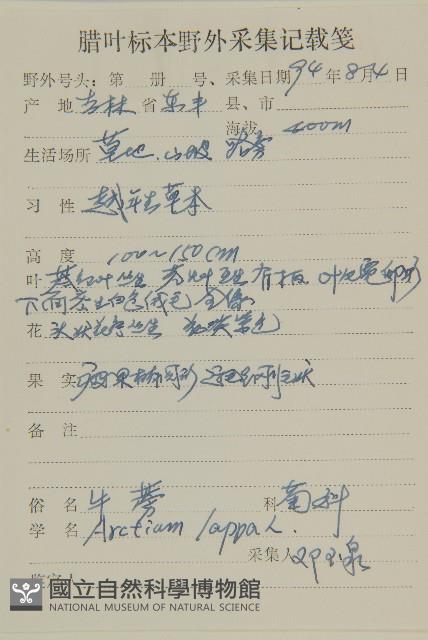 腊叶标本野外采集记载笺
野外号头：第 册 号、采集日期94年8月4日
产 地 吉林省东丰县、市
海拔 400m
生活场所 草地.山坡 路旁
习 性 越年生草本
高 度 100~150cm
叶 基生叶丛生 茎叶互生有柄 叶片宽卵形
下面密生白色绒毛 全缘
花 头状花序丛生 花淡紫色
果 实 瘦果椭圆形 冠毛
备 注
俗 名 牛蒡 科 菊科
学 名 Arctium lappa L.
采集人 邓玉泉
國立自然科學博物館
NATIONAL MUSEUM OF NATURAL SCIENCE